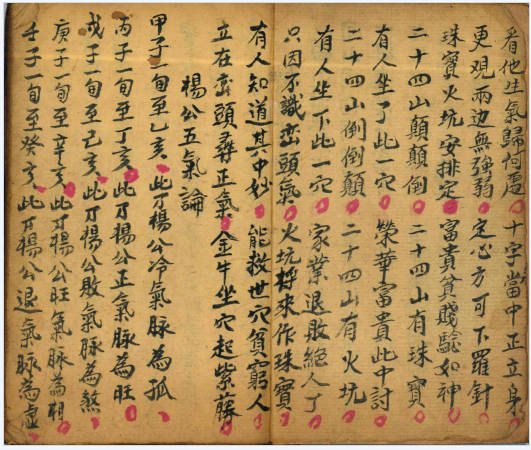 看他生氣歸何處 十字當中正立身
更观兩边無強弱 定心方可下羅針
珠寶火坑安排定 富貴貧賤驗如神
二十四山顛顛倒 二十四山有珠寶
有人坐了此一穴 榮華富貴此中討
二十四山倒倒顛 二十四山有火坑
有人坐下此一穴 家業退敗絕人丁
只因不識巒頭氣 火坑將來作珠寶
有人知道其中妙 能救世穴貧窮人
立在巒頭尋正氣 金牛坐穴起紫藤
楊公五氣論
甲子一旬至乙亥 此乃楊公冷氣脈為孤
丙子一旬至丁亥 此乃楊公正氣脈為旺
戊子一旬至己亥 此乃楊公敗氣脈為煞
庚子一旬至辛亥 此乃楊公旺氣脈為相
壬子一旬至癸亥 此乃楊公退氣脈為虛